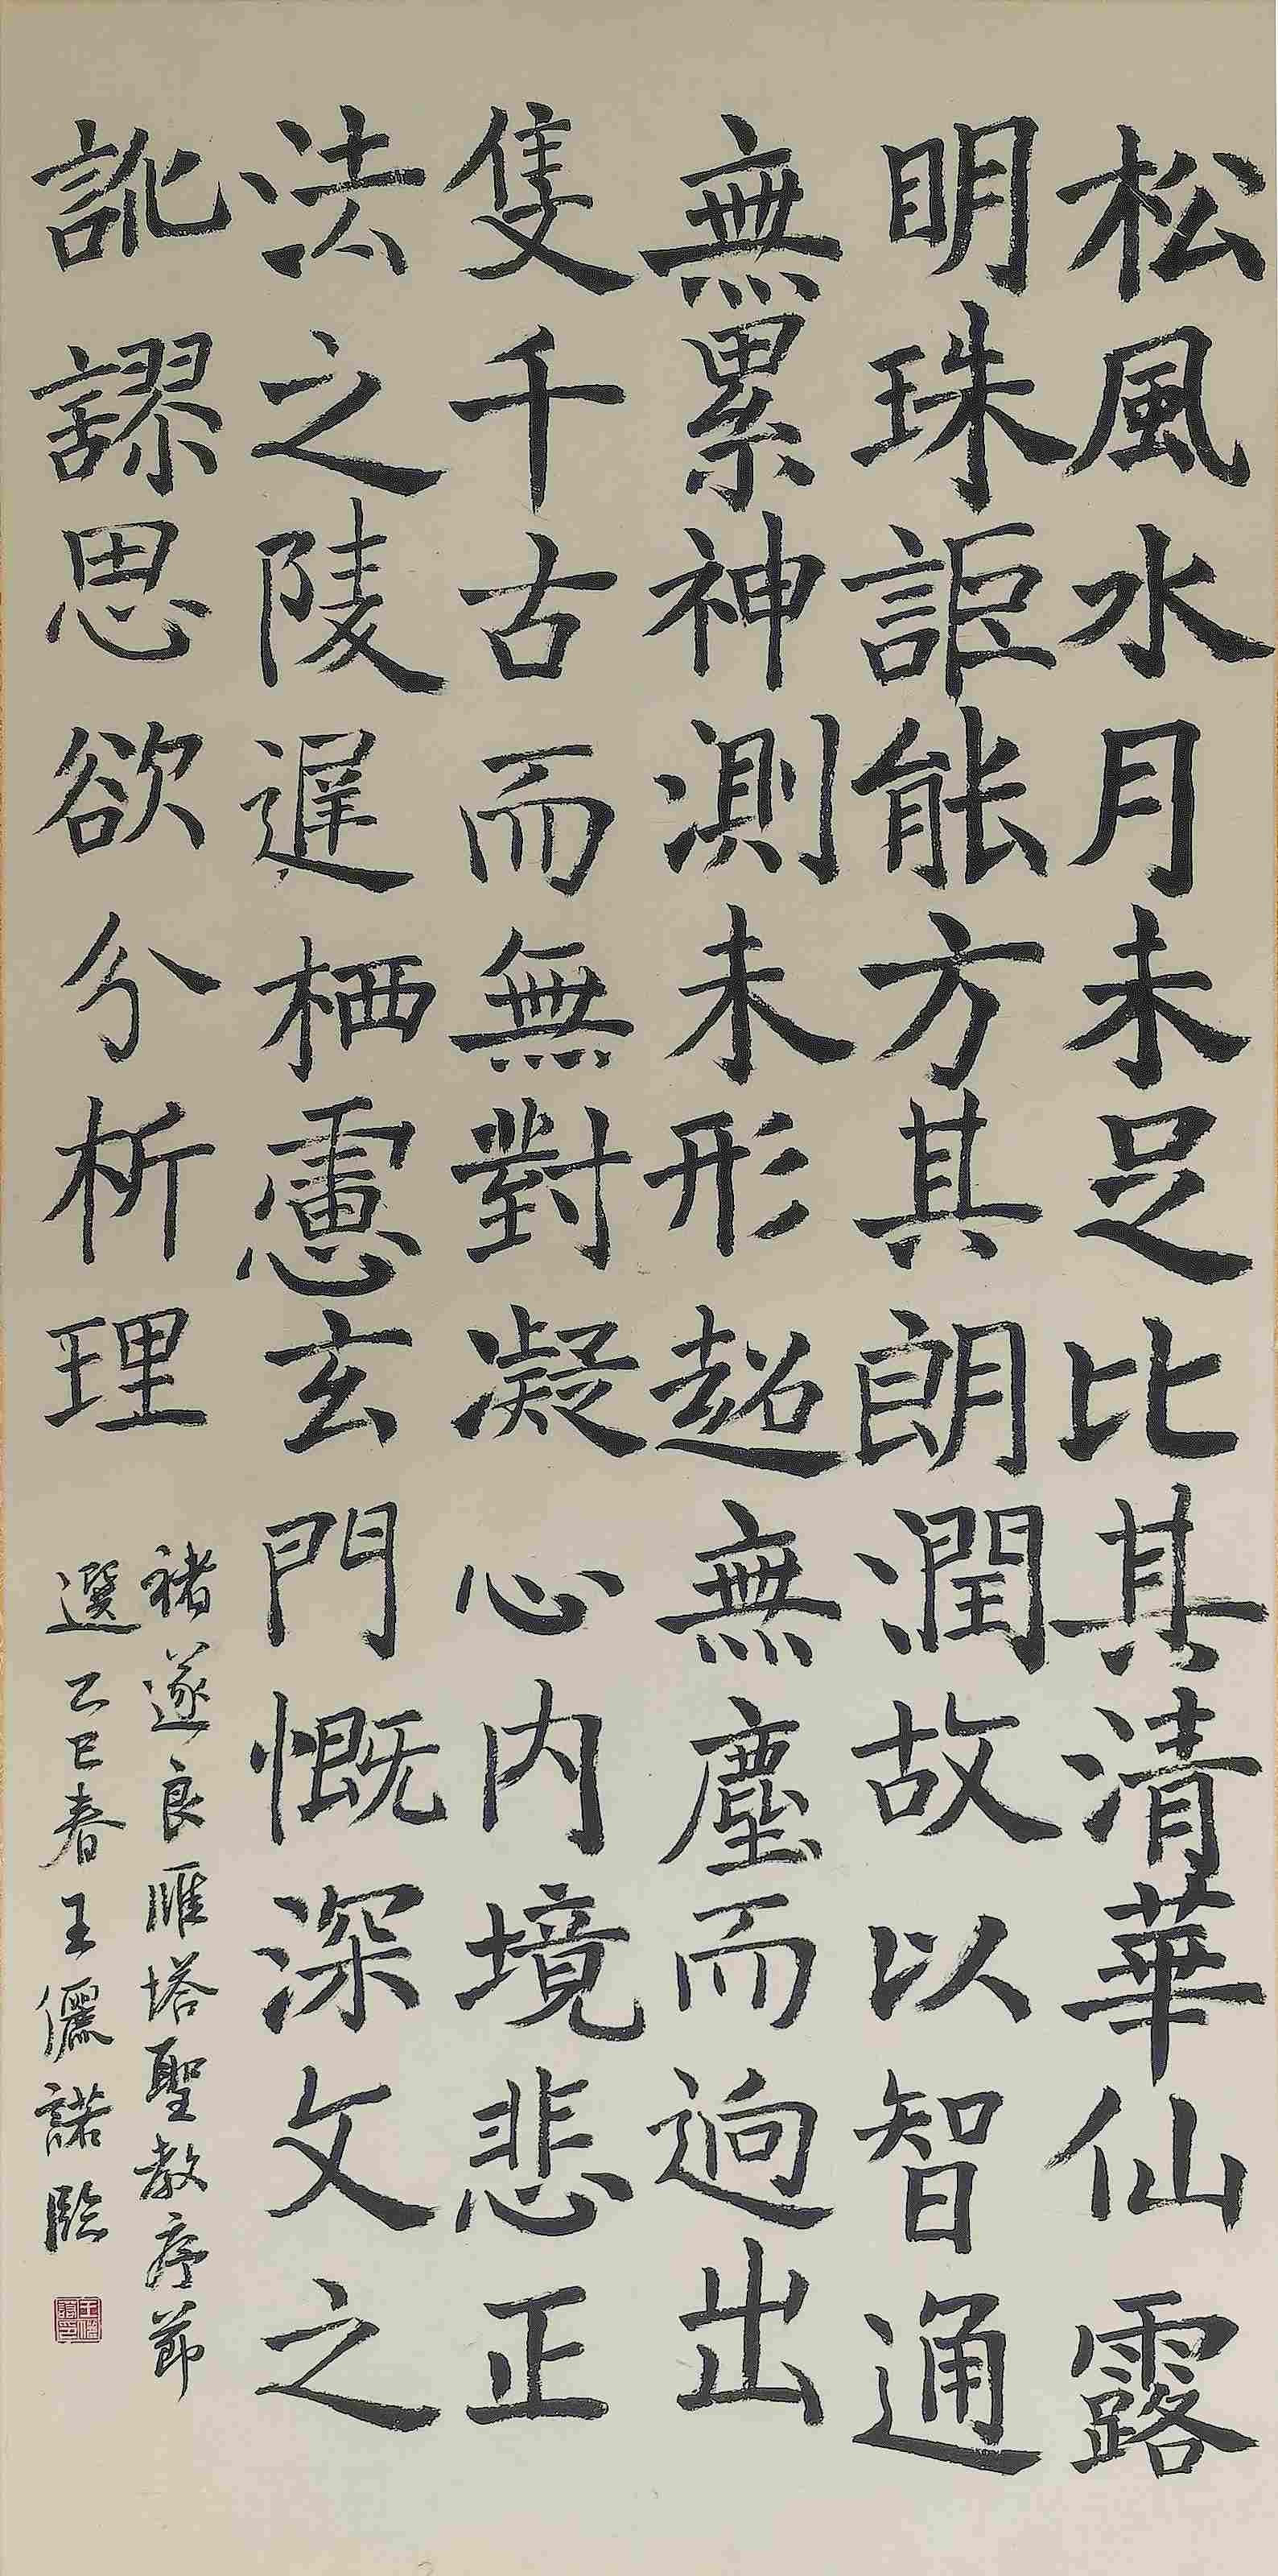 松風水月未足比其清華仙露
明珠詎能方其朗潤故以智通
無累神測未形超無塵而迥出
隻千古而無對凝心內境悲正
法之陵遲栖慮玄門慨深文之
訛謬思欲分析理
褚遂良雁塔聖教序節
選乙巳春王儷諾臨